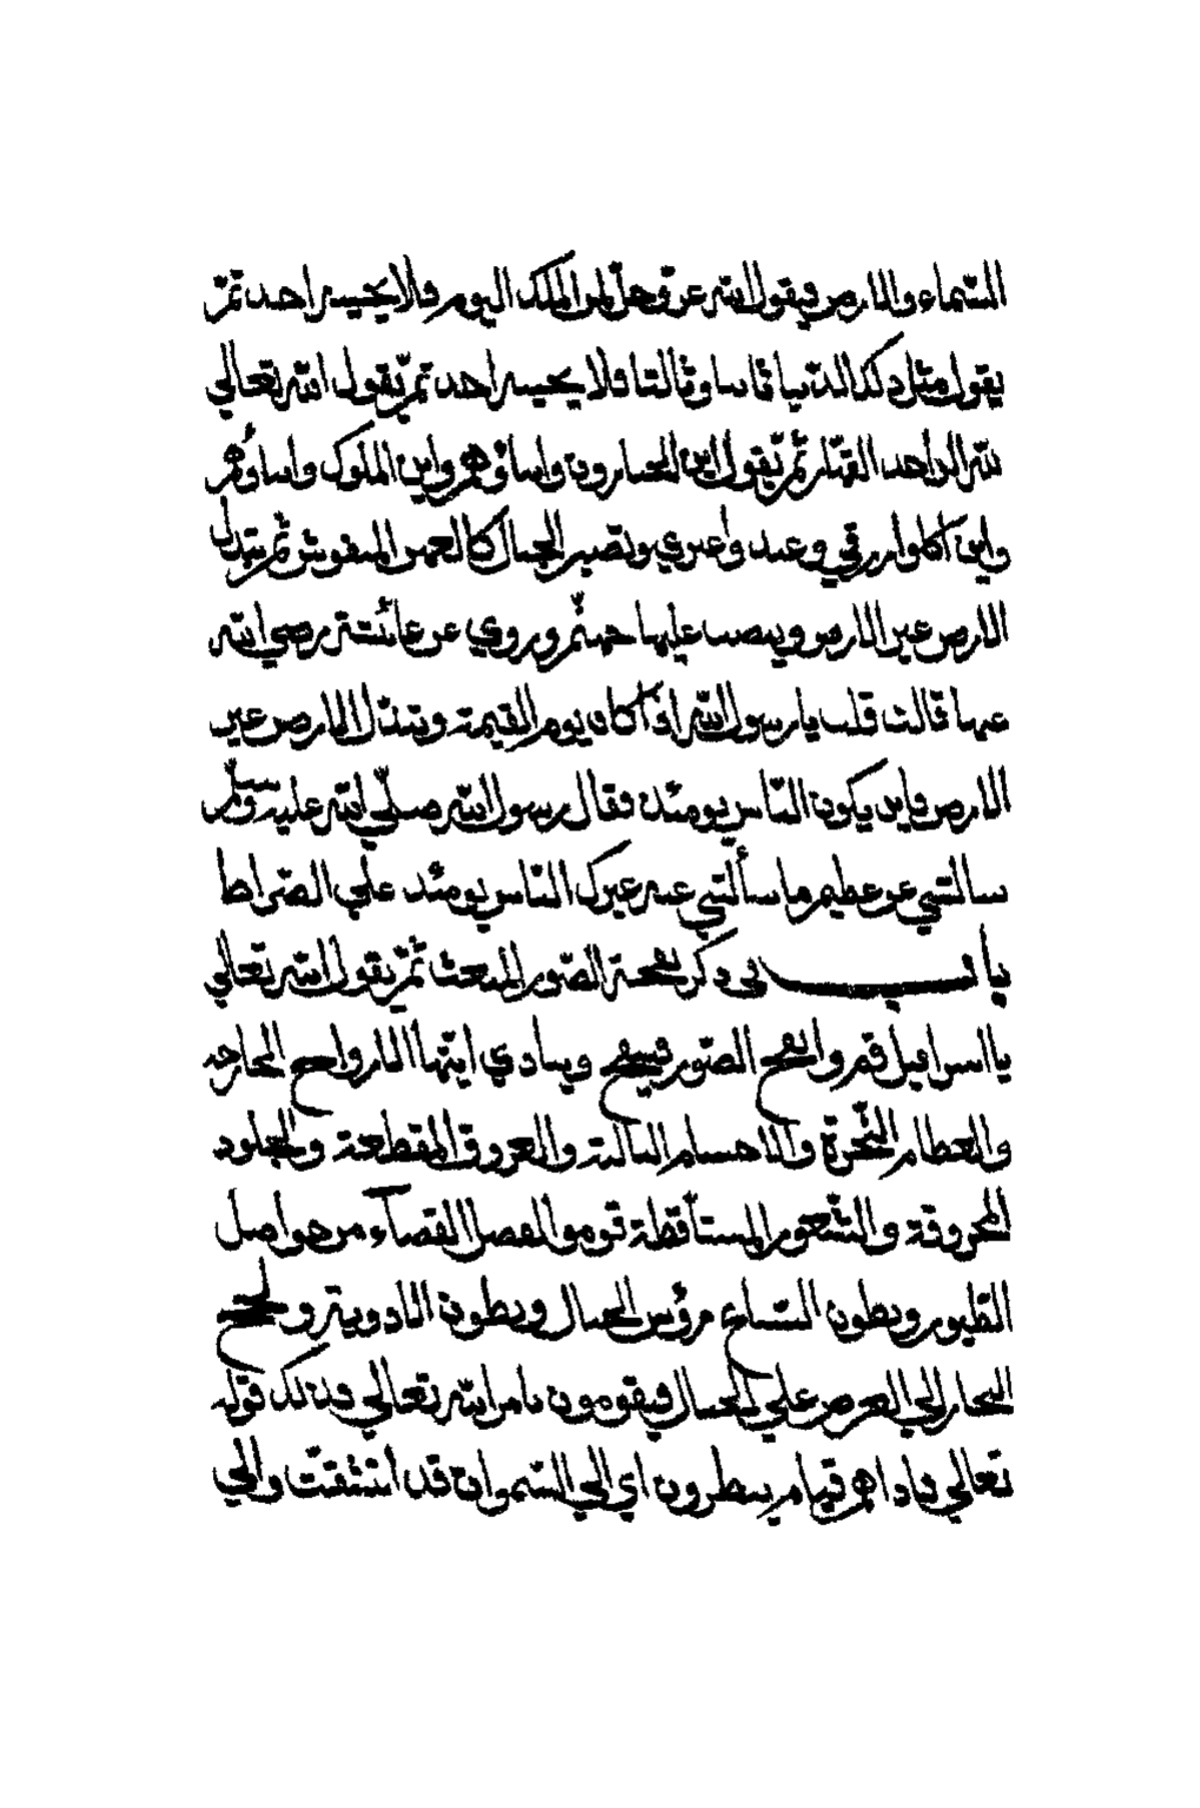 السّماء والارض فيقول الله عزّ وجلّ لمن الملك اليوم فلا يجيبه احد ثمّ
يقول مثل ذلك الدّنيا ثانيا وثالثا فلا يجيبه احد ثمّ يقول الله تعالي
لله الواحد القهّار ثمّ يقول اين الجبارون وابناؤهم واين الملوك وابناؤهم
واين اكلوا رزقي وعبدوا غيري وتصير الجبال كالعهن المنفوش ثمّ يبتدل
الارض غير الارض ويصب عليها جهنّم وروي عن عائشة رضي الله
عنها قالت قلت يا رسول الله اذا كان يوم القيمة وتبدل الارض غير
الارض فاين يكون النّاس يومئذ فقال رسول الله صلّي الله عليه وسلّم
سالتني عن عظيم ما سألتني عنه غيرك النّاس يومئذ علي الصّراط
باب في ذكر نفخة الصّور للبعث ثمّ يقول الله تعالي
يا اسرافيل قم وانفخ الصّور فينفخ وينادي ايّتها الارواح الخارجه
والعظام النّخرة والاجسام البالية والعروق المقطعة والجلود
المحروقة والشّعور المستأقطة قوموا لفصل القضآء من حواصل
الطّيور وبطون السّباع من رؤس الجبال وبطون الادوية ولجج
البحار الي العرض علي الجبال فيقومون بامر الله تعالي فذلك قوله
تعالي فاذا هم قيام ينظرون اي الي السّموات قد انشقّت والي